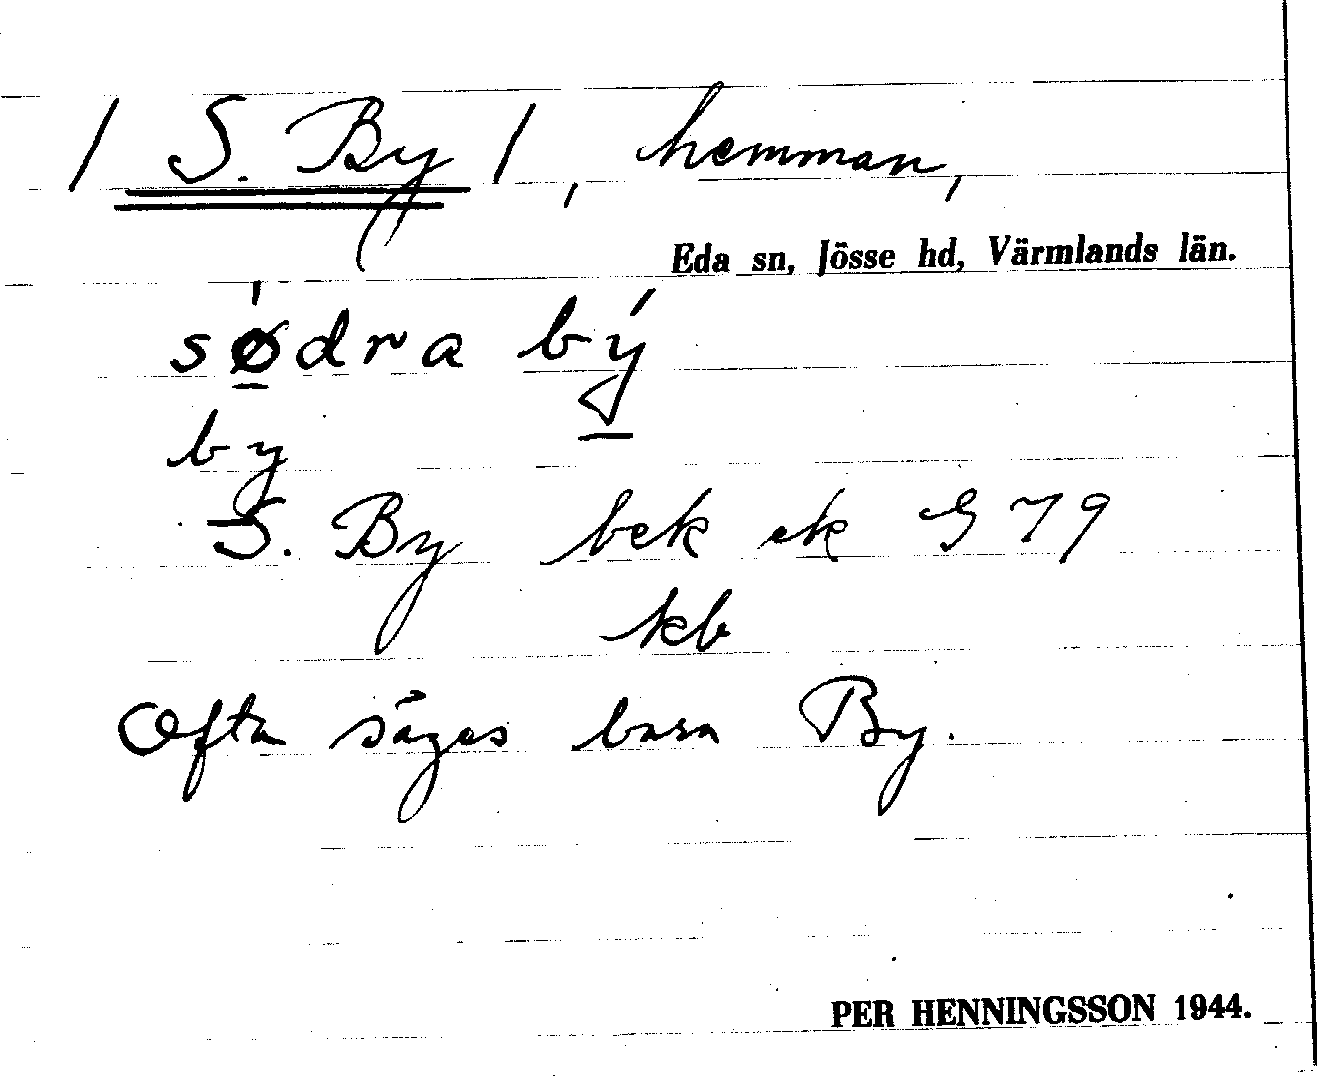 / S. By /, hemman,
Eda sn, Jösse hd, Värmlands län.
sǿdra bý
by
S. By bek ek G 79
kb
Ofta säges bara By.
PER HENNINGSSON 1944.